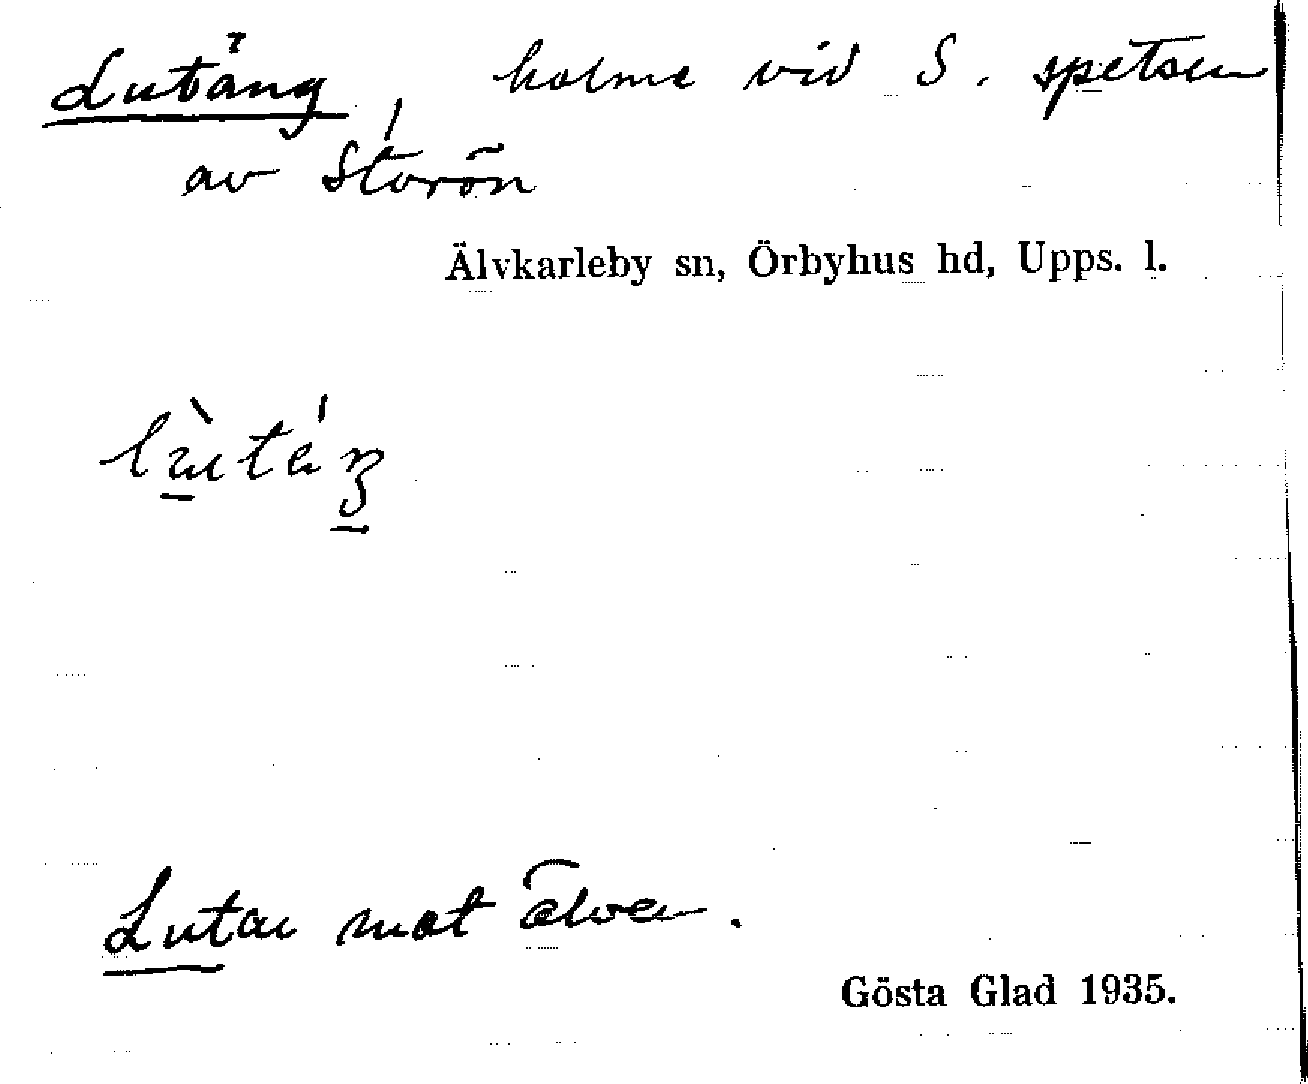 Lutäng, holme vid S. spetsen
av Storön
Älvkarleby sn, Örbyhus hd, Upps. l.
Lutar mot älven.
Gösta Glad 1935.